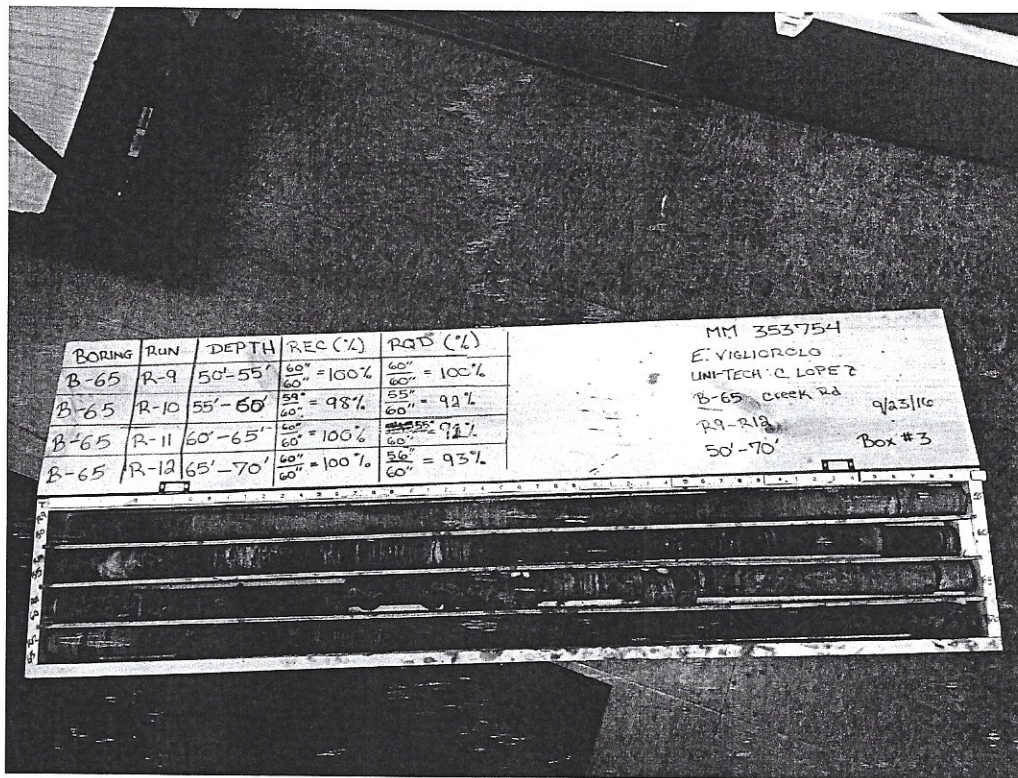 BORING RUN DEPTH REC (%) RQD (%)
B-65 R-9 50'-55' 60"/60" = 100% 60"/60" = 100%
B-65 R-10 55'-60' 59"/60" = 98% 55"/60" = 92%
B-65 R-11 60'-65' 60"/60" = 100% 55"/60" = 92%
B-65 R-12 65'-70' 60"/60" = 100% 56"/60" = 93%
MM 353754
E. VIGLIOROLO
UNI-TECH: C. LOPEZ
B-65 Creek Rd
9/23/16
R9-R12
50'-70'
Box #3